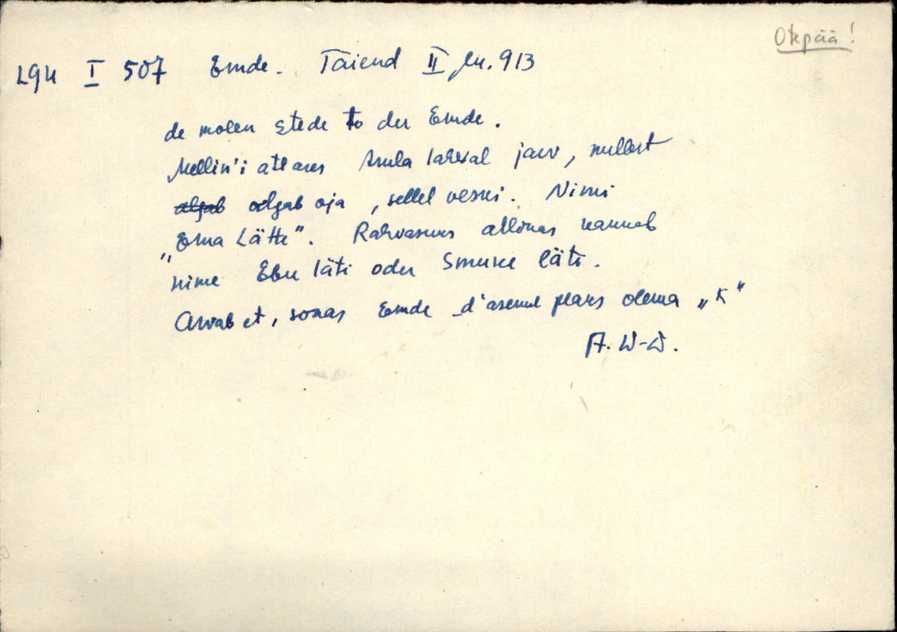 Otepää!
LGU I 507 Emde. Täiend II lk. 913
de molen stede to der Emde.
Mellin'i atlases Arula lähedal järv, millest
~~algab~~ algab oja, sellel veski. Nimi
"Erna Lätte". Rahvasuus allikas kannab
nime Ebu läti oder läti.
Arvab et, sõnas Emde d'asemel peaks olema „k"
A. W-W.